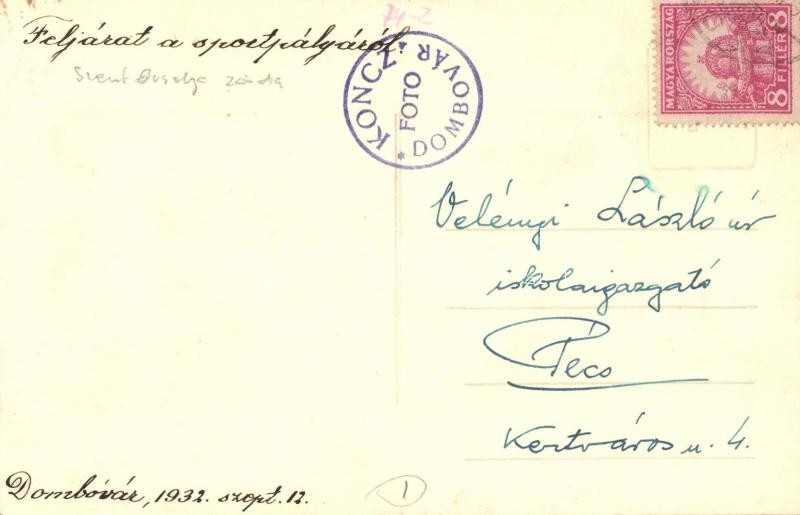 74-2
Feljárat a sportpályáról.
Szent Orsolya zárda
KONCZ FOTO DOMBOVÁR
MAGYARORSZÁG
8 FILLÉR 8
Velényi László úr
iskolaigazgató
Pécs
Kertváros u. 4.
Dombóvár, 1932. szept. 12.
1